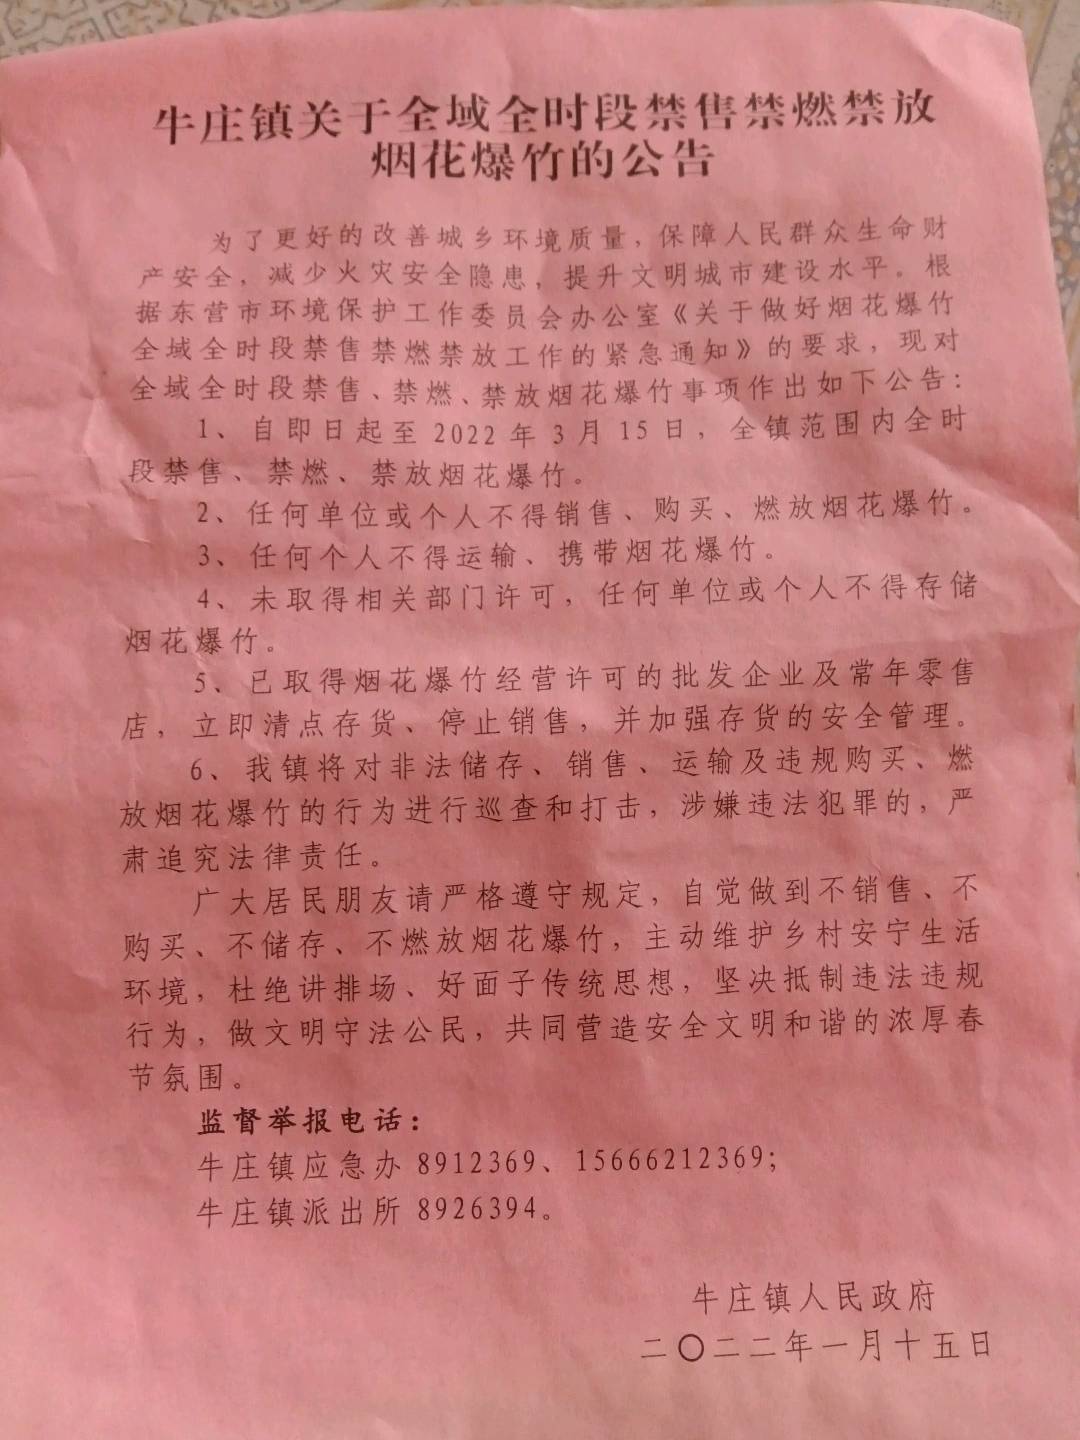 牛庄镇关于全域全时段禁售禁燃禁放
烟花爆竹的公告
为了更好的改善城乡环境质量，保障人民群众生命财
产安全，减少火灾安全隐患，提升文明城市建设水平。根
据东营市环境保护工作委员会办公室《关于做好烟花爆竹
全域全时段禁售禁燃禁放工作的紧急通知》的要求，现对
全域全时段禁售、禁燃、禁放烟花爆竹事项作出如下公告：
1、自即日起至 2022 年 3 月 15 日，全镇范围内全时
段禁售、禁燃、禁放烟花爆竹。
2、任何单位或个人不得销售、购买、燃放烟花爆竹。
3、任何个人不得运输、携带烟花爆竹。
4、未取得相关部门许可，任何单位或个人不得存储
烟花爆竹。
5、已取得烟花爆竹经营许可的批发企业及常年零售
店，立即清点存货、停止销售，并加强存货的安全管理。
6、我镇将对非法储存、销售、运输及违规购买、燃
放烟花爆竹的行为进行巡查和打击，涉嫌违法犯罪的，严
肃追究法律责任。
广大居民朋友请严格遵守规定，自觉做到不销售、不
购买、不储存、不燃放烟花爆竹，主动维护乡村安宁生活
环境，杜绝讲排场、好面子传统思想，坚决抵制违法违规
行为，做文明守法公民，共同营造安全文明和谐的浓厚春
节氛围。
监督举报电话：
牛庄镇应急办 8912369、15666212369；
牛庄镇派出所 8926394。
牛庄镇人民政府
二〇二二年一月十五日